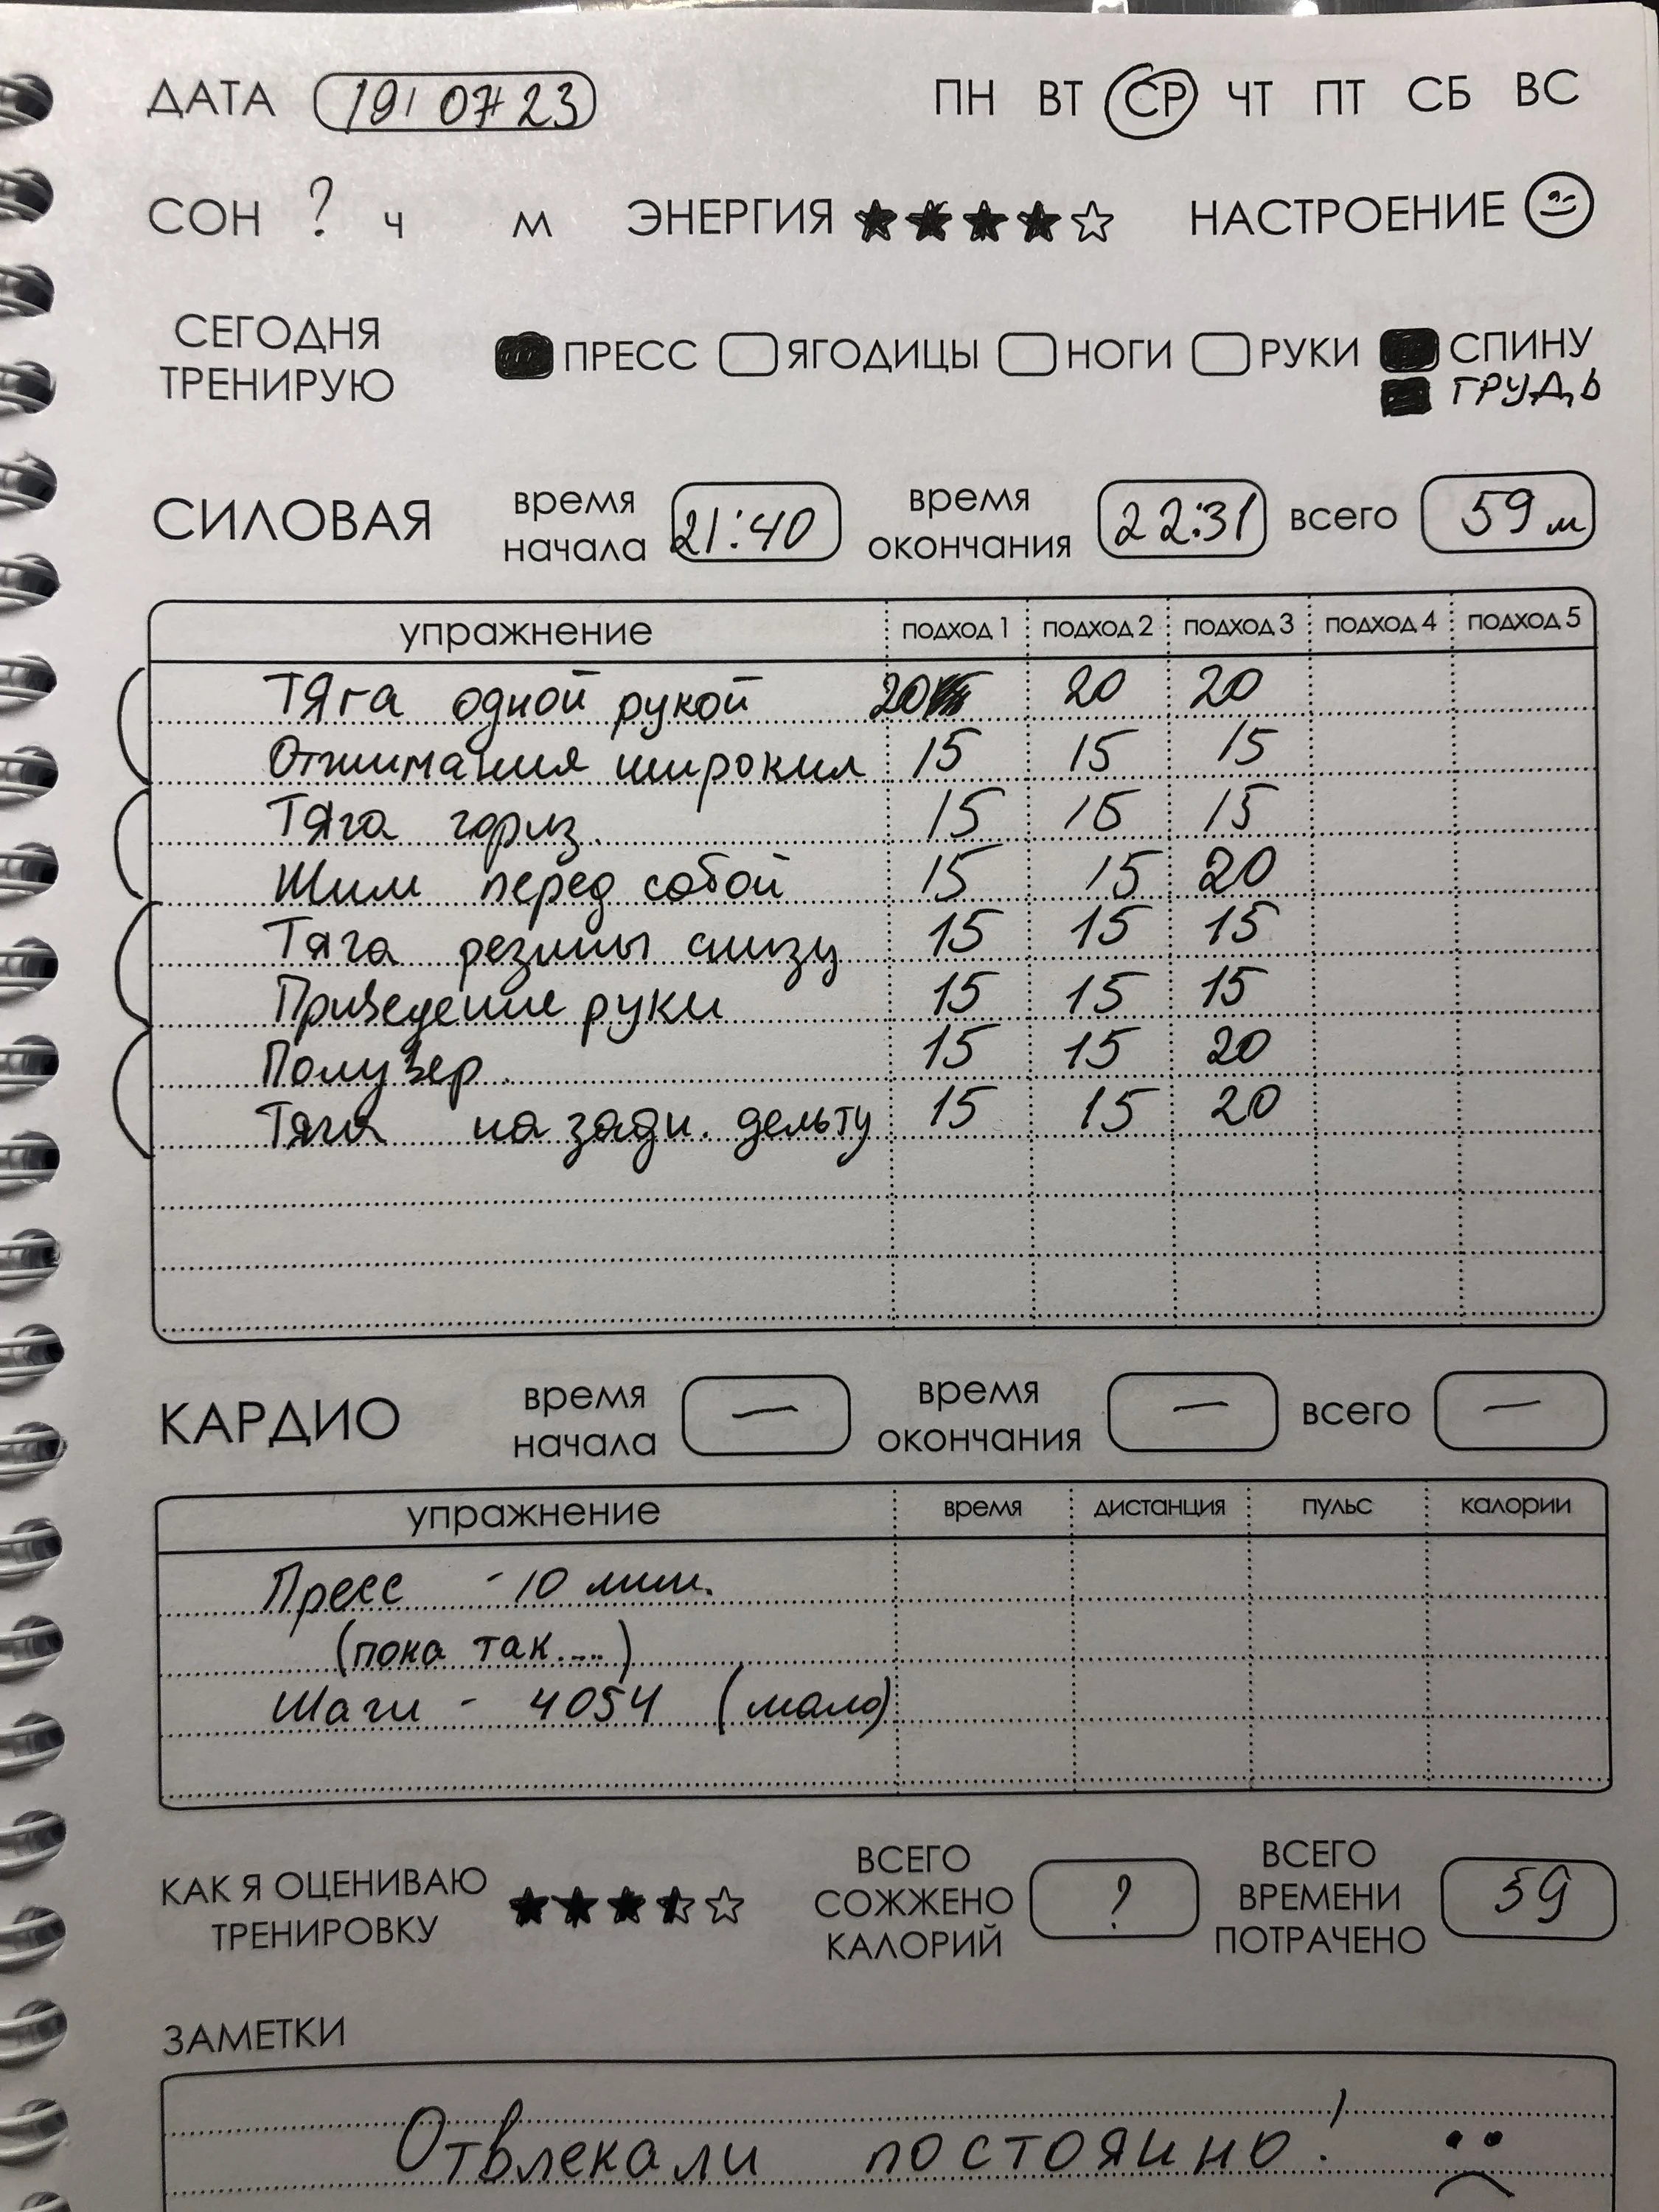 ДАТА 19/ 07 23 ПН ВТ СР ЧТ ПТ СБ ВС
СОН ? Ч М ЭНЕРГИЯ НАСТРОЕНИЕ
СЕГОДНЯ ТРЕНИРУЮ ПРЕСС ЯГОДИЦЫ НОГИ РУКИ СПИНУ
ГРУДЬ
СИЛОВАЯ время начала 21:40 время окончания 22:31 всего 59 м
упражнение подход 1 подход 2 подход 3 подход 4 подход 5
Тяга одной рукой 20 20 20
Отжимания широкие 15 15 15
Тяга гориз. 15 15 15
Жим перед собой 15 15 20
Тяга резины снизу 15 15 15
Приведение руки 15 15 15
Полувер. 15 15 20
Тяга на задн. дельту 15 15 20
КАРДИО время начала — время окончания — всего —
упражнение время дистанция пульс калории
Пресс - 10 мин.
(пока так....)
Шаги - 4054 (мало)
КАК Я ОЦЕНИВАЮ ТРЕНИРОВКУ ВСЕГО СОЖЖЕНО КАЛОРИЙ ? ВСЕГО ВРЕМЕНИ ПОТРАЧЕНО 59
ЗАМЕТКИ
Отвлекали постоянно!